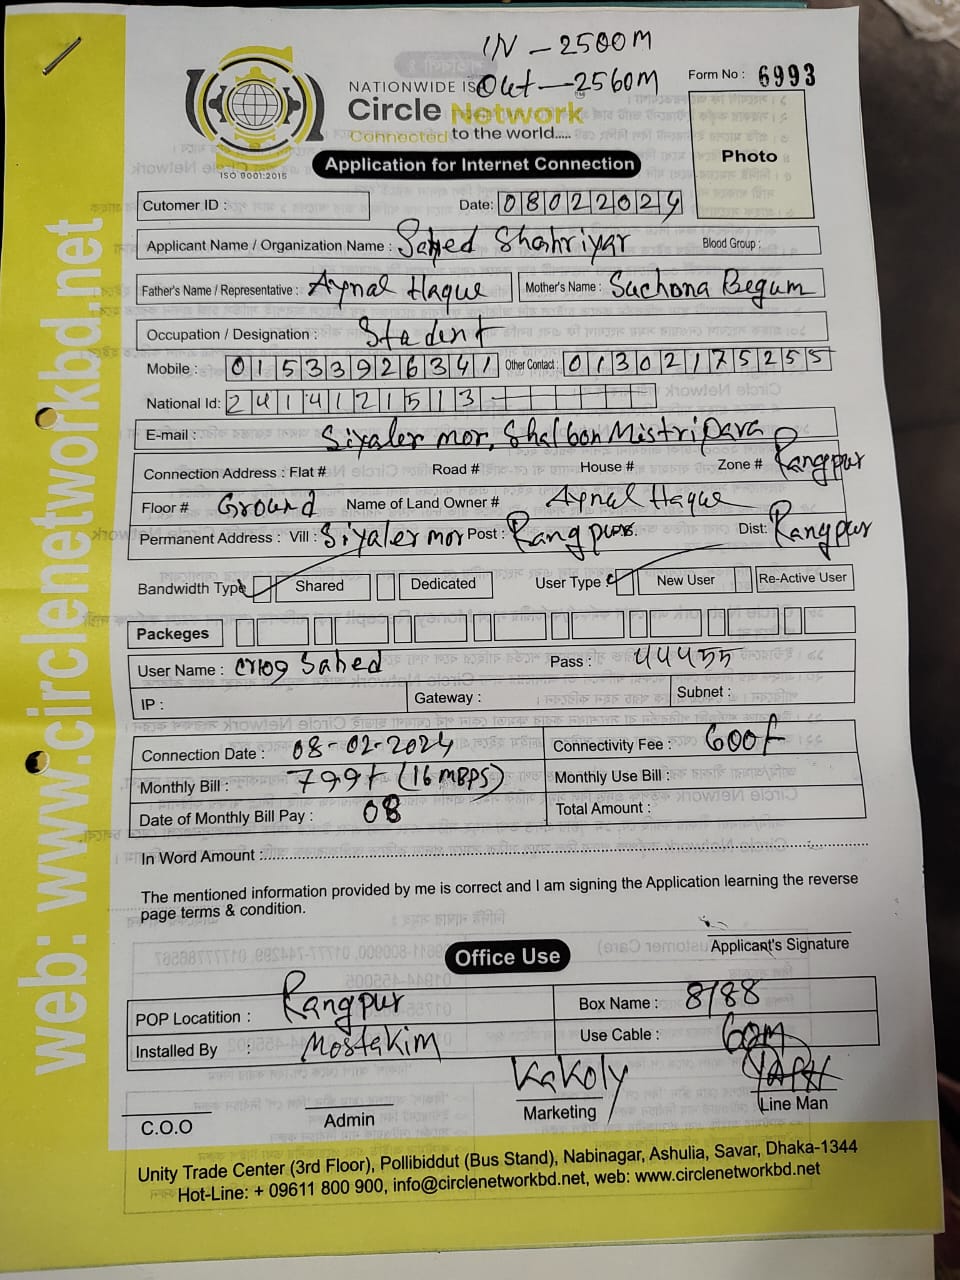 IN - 2500M
NATIONWIDE IS Out - 2560M
Form No : 6993
Circle Network
Connected to the world.....
ISO 9001:2015
Photo
Application for Internet Connection
Cutomer ID :
Date: 08022024
Applicant Name / Organization Name : Sahed Shahriyar Blood Group :
Father's Name / Representative : Aynal Haque Mother's Name : Suchona Begum
Occupation / Designation : Student
Mobile : 01533926341 Other Contact : 01302175255
National Id: 2414121513
E-mail : Siyaler mor, Shalbon Mistripara
Connection Address : Flat # Road # House # Zone # Rangpur
Floor # Ground Name of Land Owner # Aynal Haque
Permanent Address : Vill : Siyaler mor Post : Rangpur Dist: Rangpur
Bandwidth Type Shared Dedicated User Type : New User Re-Active User
Packeges
User Name : Sahed Pass : 44455
IP : Gateway : Subnet :
Connection Date : 08-02-2024 Connectivity Fee : 600
Monthly Bill : 799 (16 MBPS) Monthly Use Bill :
Date of Monthly Bill Pay : 08 Total Amount :
In Word Amount :
The mentioned information provided by me is correct and I am signing the Application learning the reverse
page terms & condition.
Applicant's Signature
Office Use
POP Locatition : Rangpur Box Name : 8/88
Installed By : Mostakim Use Cable : 60m
Kakoly
C.O.O Admin Marketing Line Man
Unity Trade Center (3rd Floor), Pollibiddut (Bus Stand), Nabinagar, Ashulia, Savar, Dhaka-1344
Hot-Line: + 09611 800 900, info@circlenetworkbd.net, web: www.circlenetworkbd.net
web: www.circlenetworkbd.net